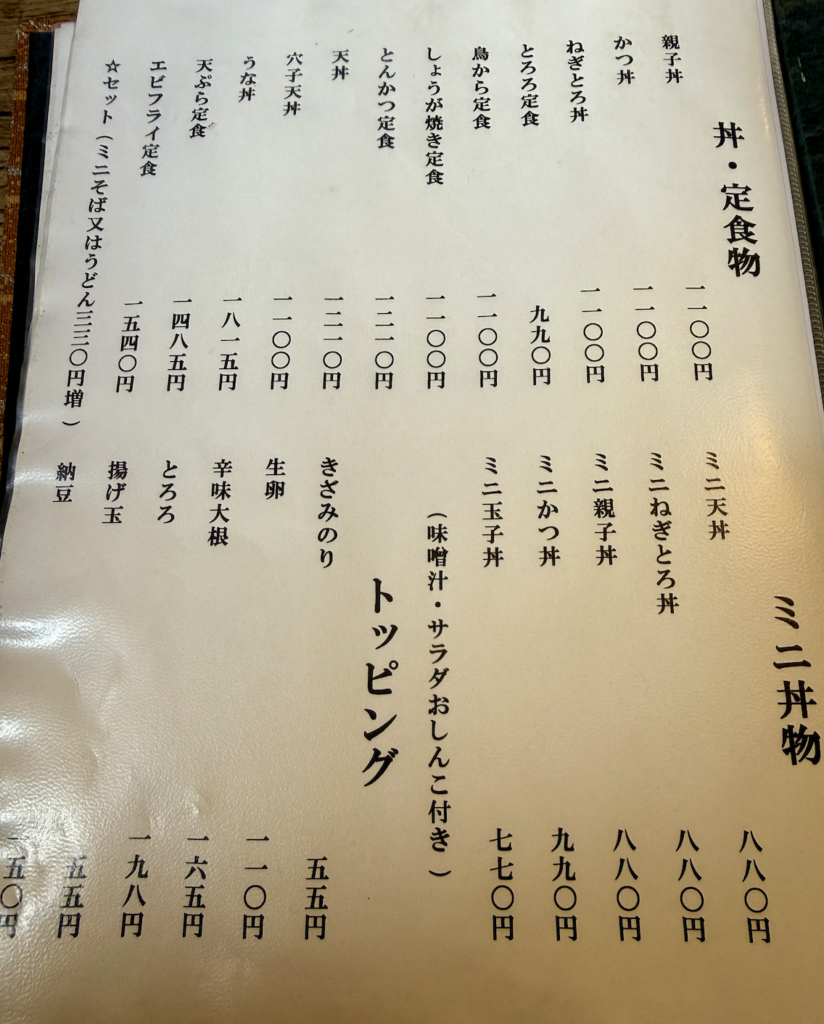 丼・定食物
親子丼 一一〇〇円
かつ丼 一一〇〇円
ねぎとろ丼 一一〇〇円
とろろ定食 九九〇円
鳥から定食 一一〇〇円
しょうが焼き定食 一一〇〇円
とんかつ定食 一二一〇円
天丼 一二一〇円
穴子天丼 一一〇〇円
うな丼 一八一五円
天ぷら定食 一四八五円
エビフライ定食 一五四〇円
☆セット（ミニそば又はうどん三三〇円増）
ミニ丼物
ミニ天丼 八八〇円
ミニねぎとろ丼 八八〇円
ミニ親子丼 八八〇円
ミニかつ丼 九九〇円
ミニ玉子丼 七七〇円
（味噌汁・サラダおしんこ付き）
トッピング
きざみのり 五五円
生卵 一一〇円
辛味大根 一六五円
とろろ 一九八円
揚げ玉 五五円
納豆 一五〇円